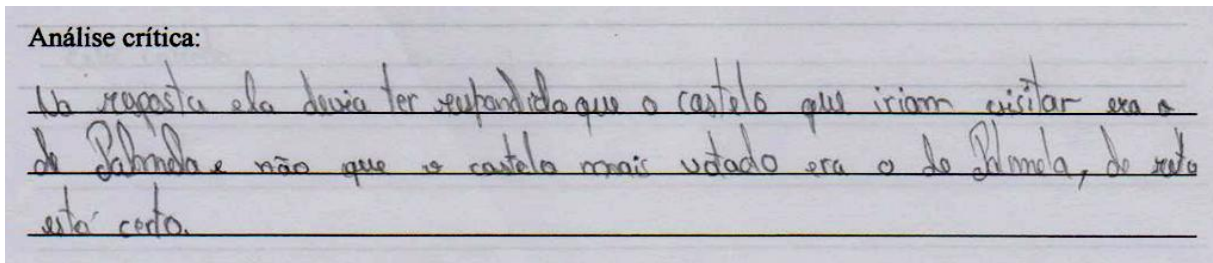 Análise crítica:
Na resposta ela devia ter respondido que o castelo que iriam visitar era o
de Palmela e não que o castelo mais votado era o de Palmela, de resto
está certo.